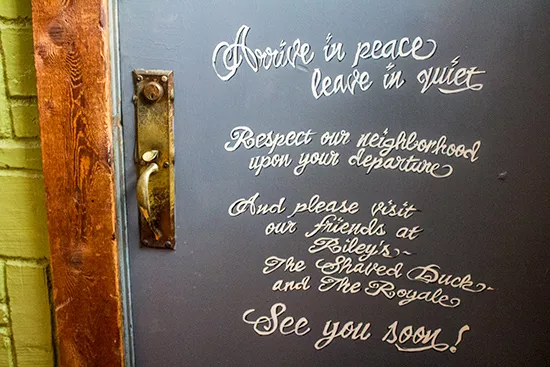 Arrive in peace
leave in quiet
Respect our neighborhood
upon your departure
And please visit
our friends at
Riley's~
The Shaved Duck~
and The Royale
See you soon!